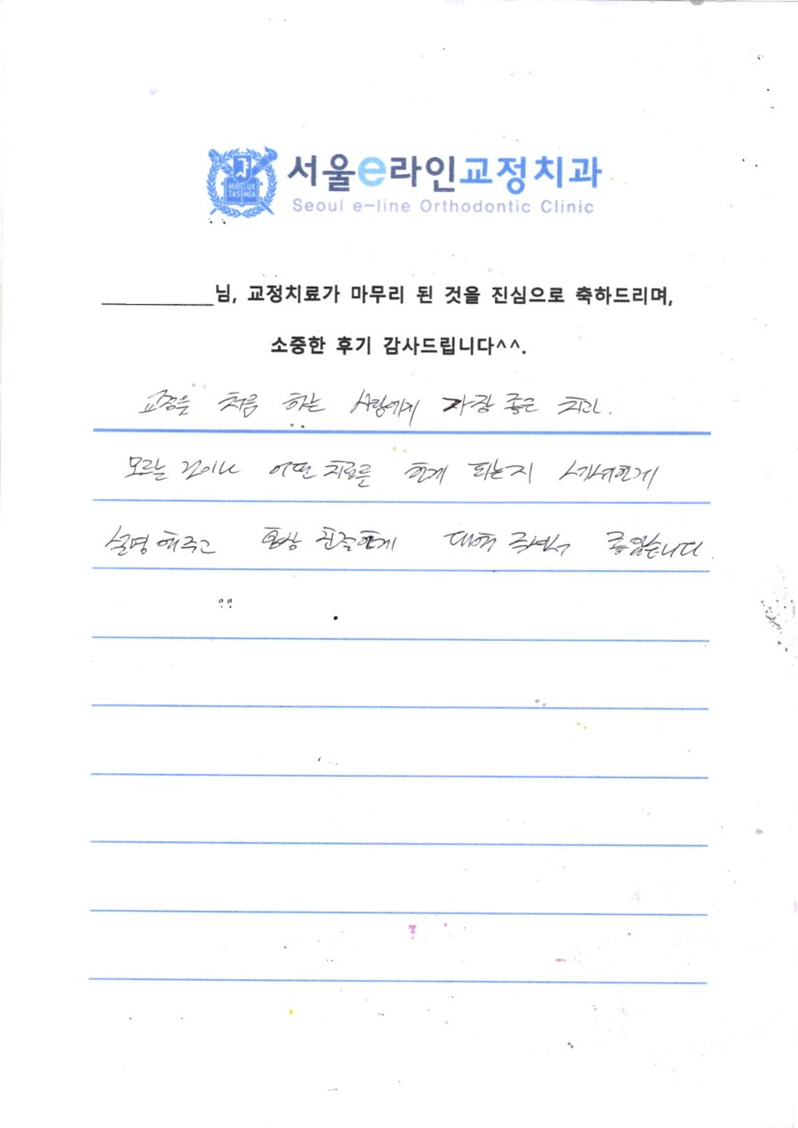 서울e라인교정치과
Seoul e-line Orthodontic Clinic
VERI LUX TAS MEA
__________님, 교정치료가 마무리 된 것을 진심으로 축하드리며,
소중한 후기 감사드립니다^^.
교정을 처음 하는 사람에게 가장 좋은 치과.
모르는 것이나 어떤 치료를 하게 되는지 세세하게
설명 해주고 항상 친절하게 대해 주셔서 좋았습니다